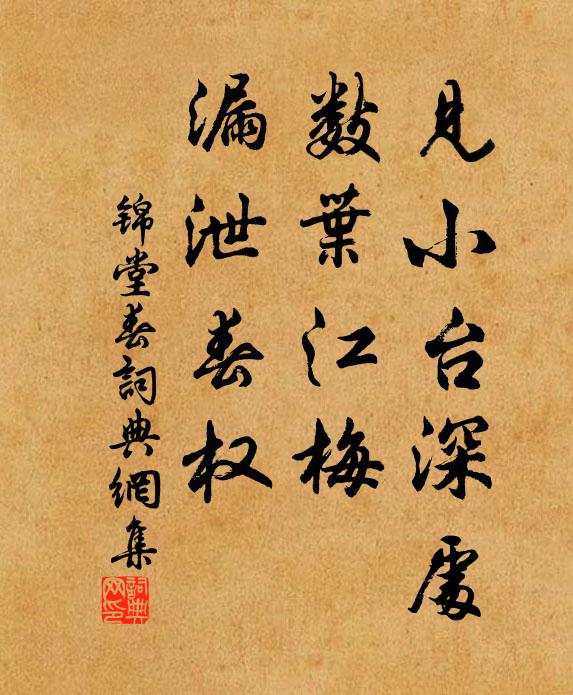 見小台深處
數葉江梅
漏泄春权
锦堂春詞典網集
詞典網印